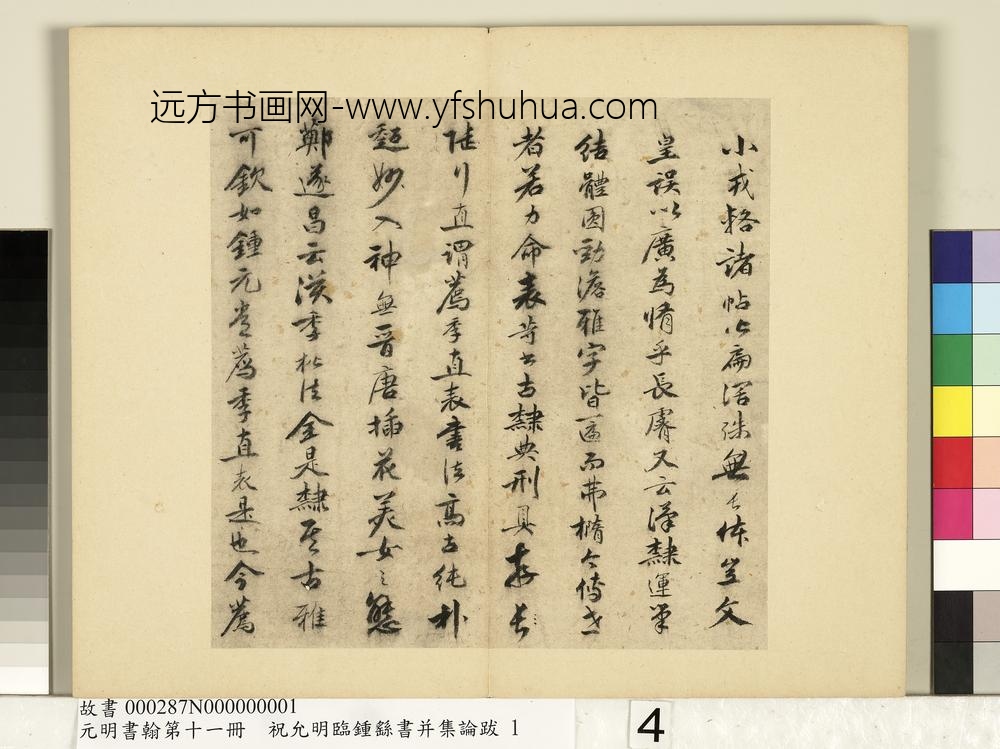 远方书画网-www.yfshuhua.com
小戎輅諸帖以扁濶殊無長体豈文
皇誤以廣為惰乎長膚又云漢隸運筆
結體圓勁澹雅字皆匾而弗橢今傳世
者若力命表等書古隸典刑具存長
陸行直謂薦季直表書法高古純朴
超妙入神無晉唐插花美女之態
鄭遂昌云漢季隸法全是隸書古雅
可欽如鍾元常薦季直表是也今薦
故書 000287N000000001
元明書翰第十一冊 祝允明臨鍾繇書并集論跋 1
4